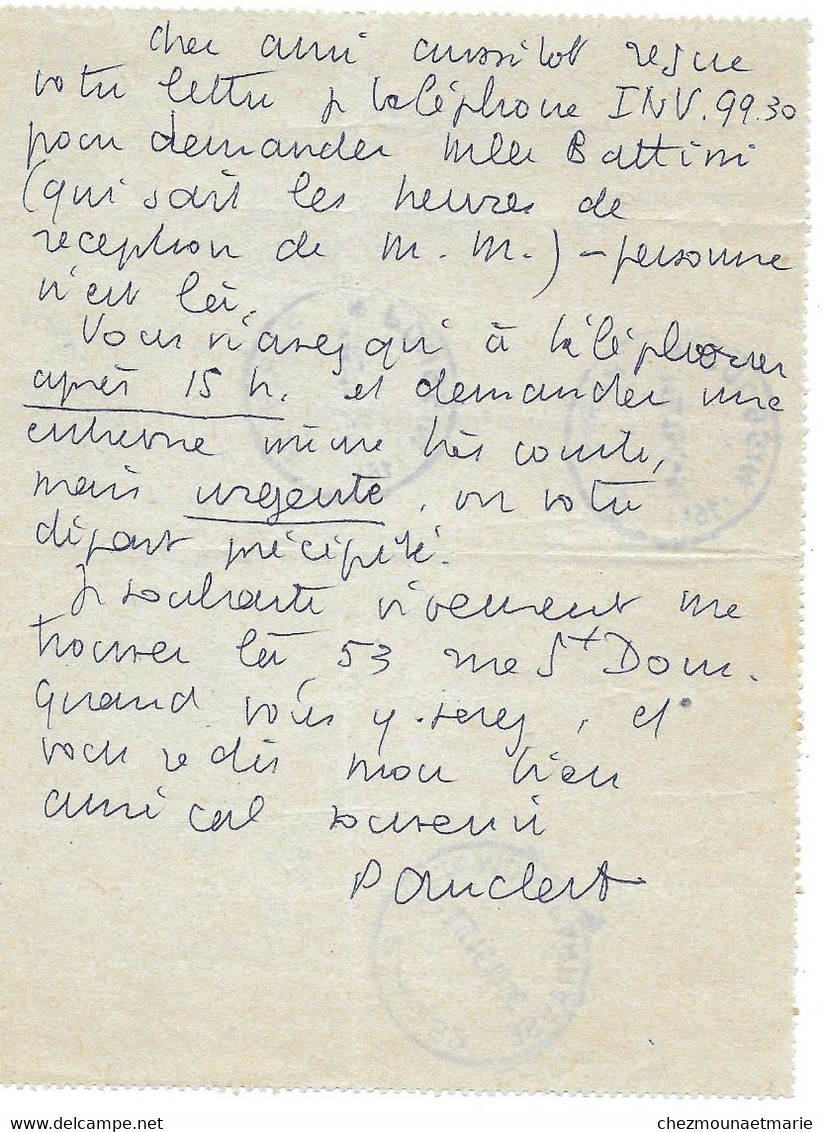 cher ami aussitôt reçue
votre lettre je téléphone INV. 99.30
pour demander Mlle Battini
(qui sait les heures de
reception de M. M.) - personne
n'est là.
Vous n'avez qu'à téléphoner
après 15 h. et demander une
entrevue même très courte,
mais urgente, vu votre
départ précipité.
Je souhaite vivement me
trouver là, 53 rue St Dom.
quand vous y serez, et
vous redis mon bien
amical souvenir
P Anclert
delcampe.net
chezmounaetmarie